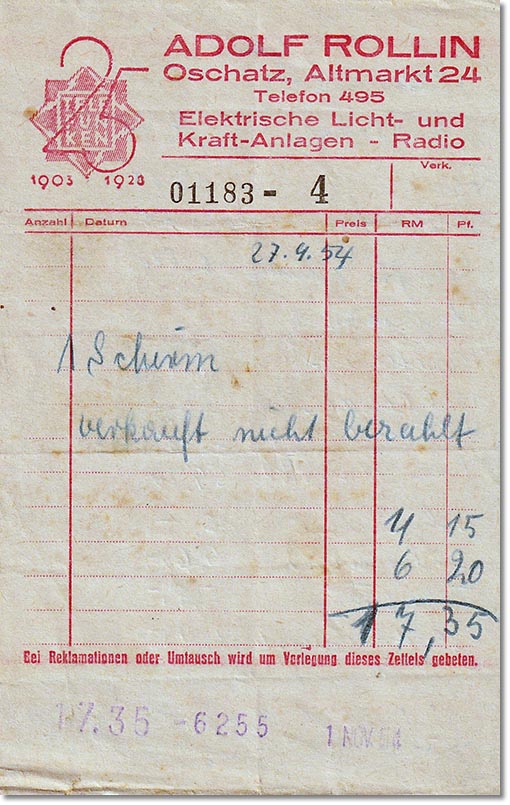 25
TELE
FUN
KEN
1903 - 1928
ADOLF ROLLIN
Oschatz, Altmarkt 24
Telefon 495
Elektrische Licht- und
Kraft-Anlagen - Radio
Verk.
01183 - 4
Anzahl Datum Preis RM Pf.
27.9.54
1 Schirm
verkauft nicht bezahlt
4 15
6 20
17,35
Bei Reklamationen oder Umtausch wird um Vorlegung dieses Zettels gebeten.
17.35 -6255 1 NOV 54